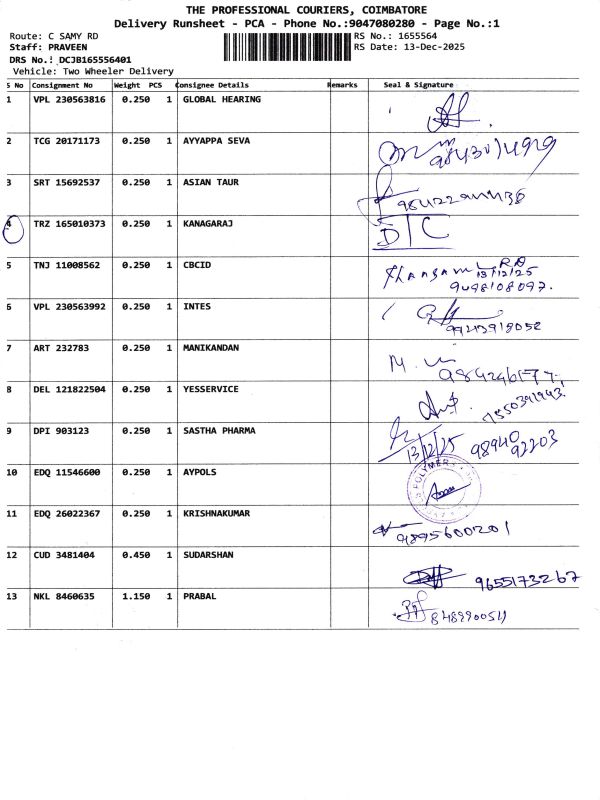 THE PROFESSIONAL COURIERS, COIMBATORE
Delivery Runsheet - PCA - Phone No.:9047080280 - Page No.:1
Route: C SAMY RD
RS No.: 1655564
Staff: PRAVEEN
RS Date: 13-Dec-2025
DRS No.: DCJB165556401
Vehicle: Two Wheeler Delivery
S No Consignment No Weight PCS Consignee Details Remarks Seal & Signature
1 VPL 230563816 0.250 1 GLOBAL HEARING
2 TCG 20171173 0.250 1 AYYAPPA SEVA
3 SRT 15692537 0.250 1 ASIAN TAUR
4 TRZ 165010373 0.250 1 KANAGARAJ D/C
5 TNJ 11008562 0.250 1 CBCID
13/12/25
9498108097.
6 VPL 230563992 0.250 1 INTES
7 ART 232783 0.250 1 MANIKANDAN
8 DEL 121822504 0.250 1 YESSERVICE
9 DPI 903123 0.250 1 SASTHA PHARMA
13/12/25 98940 92203
10 EDQ 11546600 0.250 1 AYPOLS
POLYMERS
11 EDQ 26022367 0.250 1 KRISHNAKUMAR
9895600201
12 CUD 3481404 0.450 1 SUDARSHAN
9655173267
13 NKL 8460635 1.150 1 PRABAL
8489900511